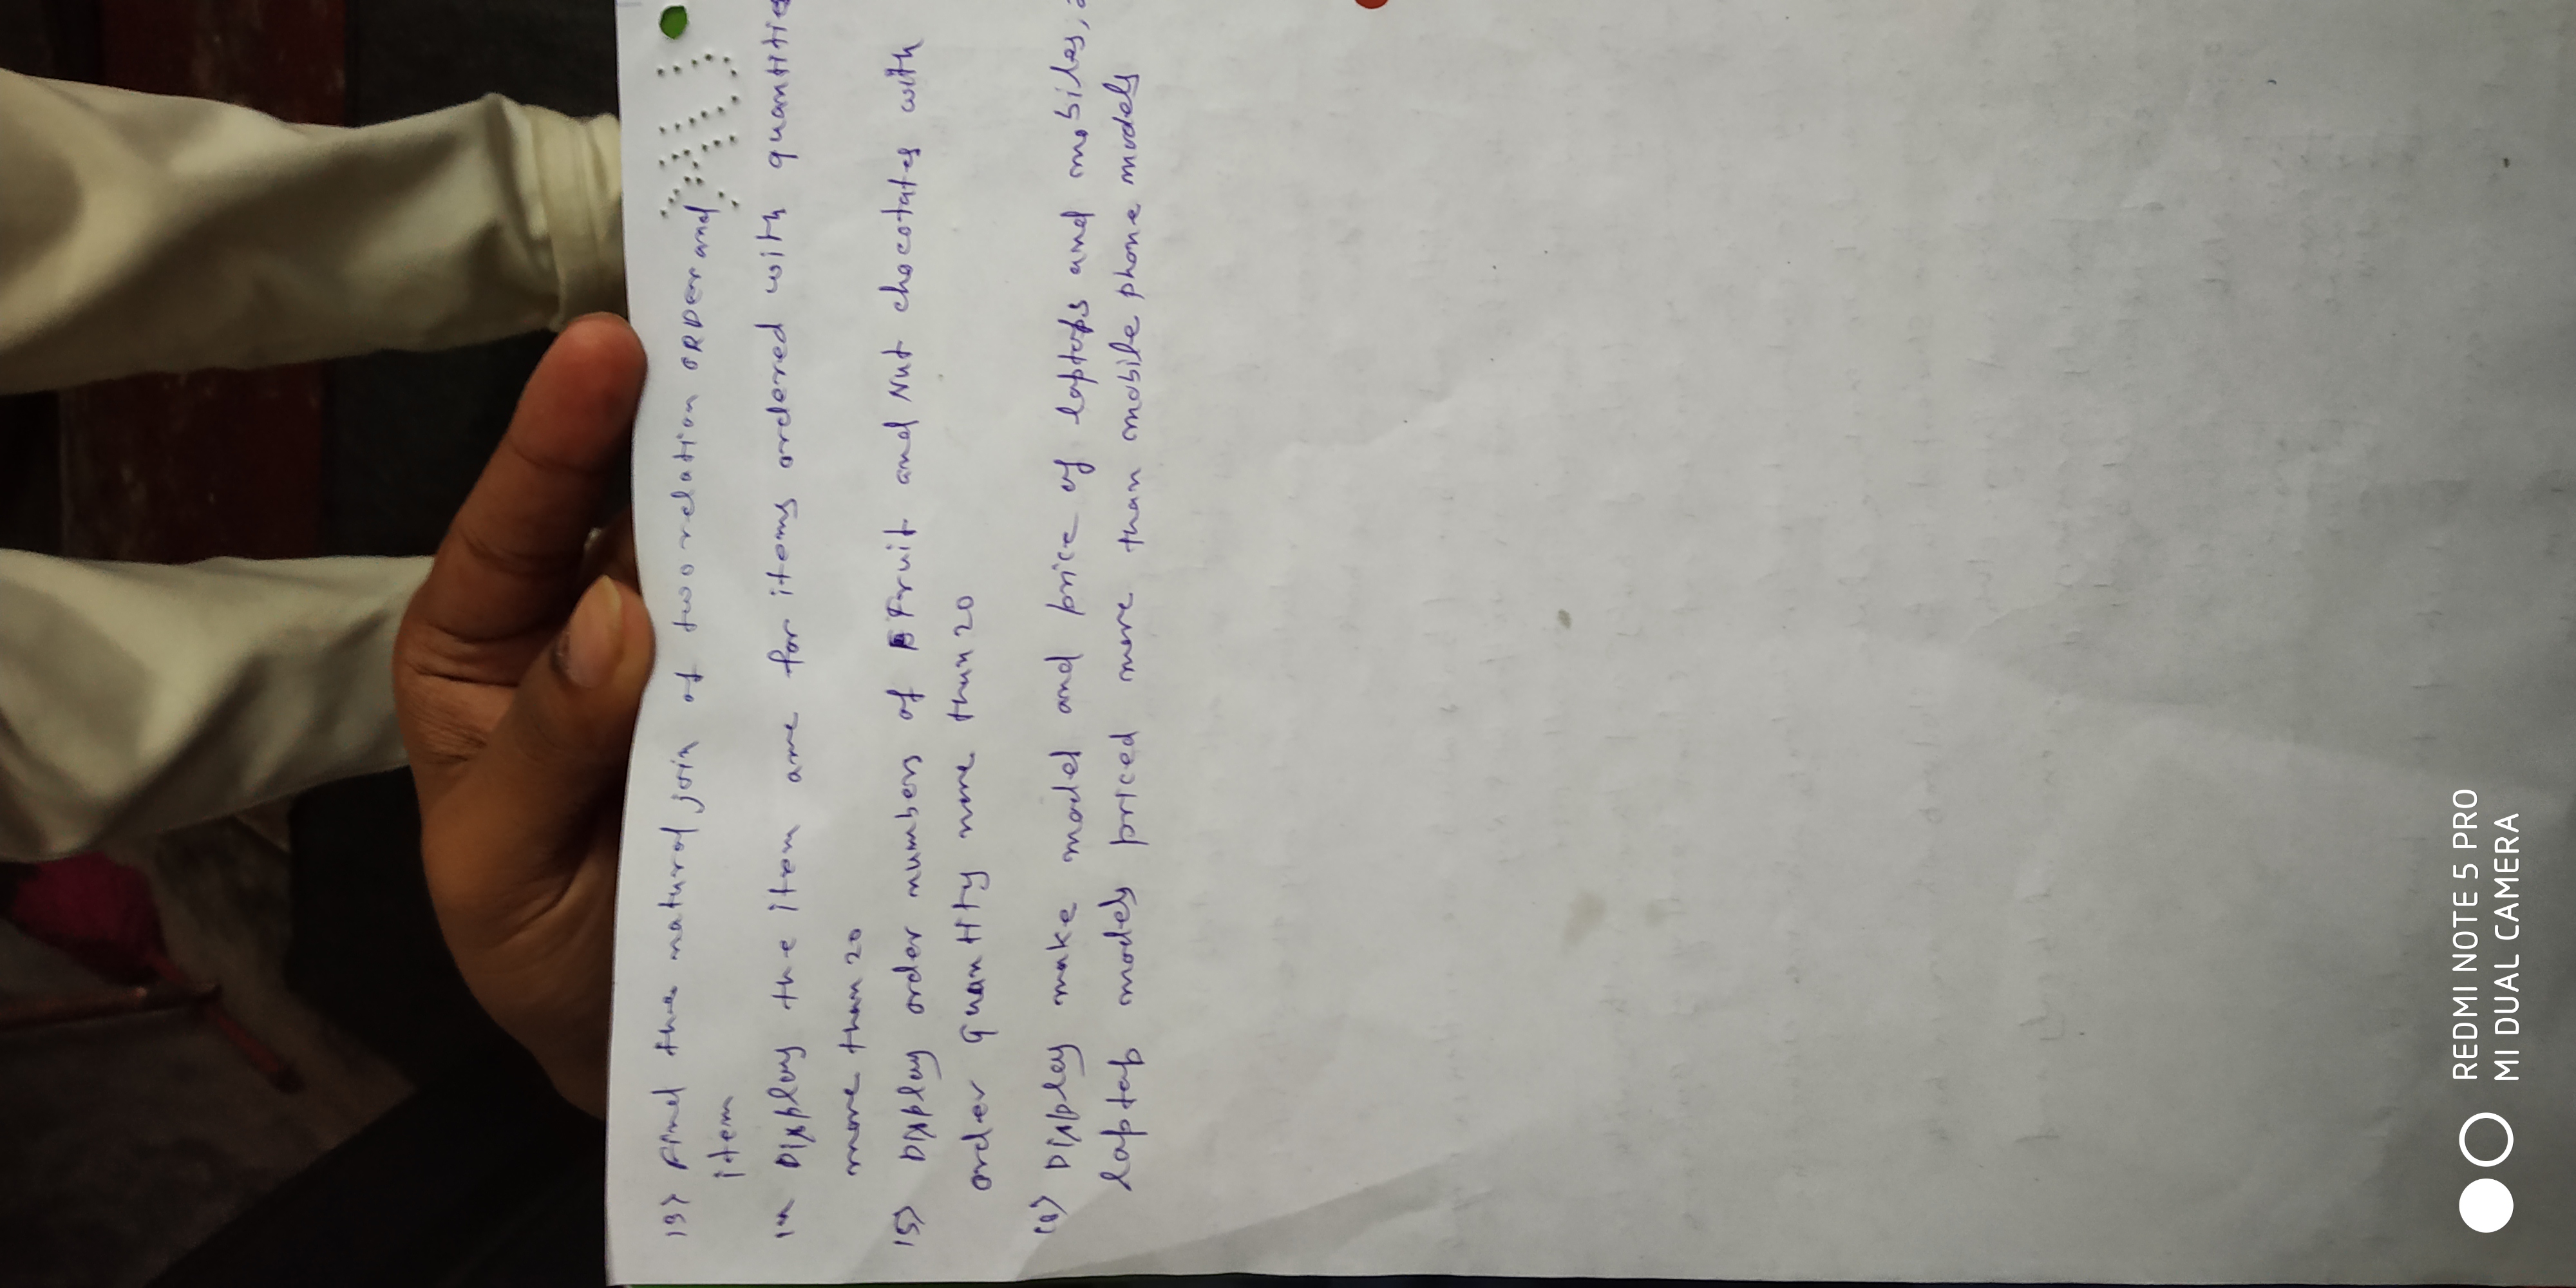 13) Find the natural join of two relation ORDer and
item
14 Display the item ame for items ordered with quantitie
more than 20
15) Display order numbers of Fruit and Nut chocotates with
order Quantity more than 20
Display make model and price of laptops and mobiles,
laptap models priced more than mobile phone models
REDMI NOTE 5 PRO
MI DUAL CAMERA